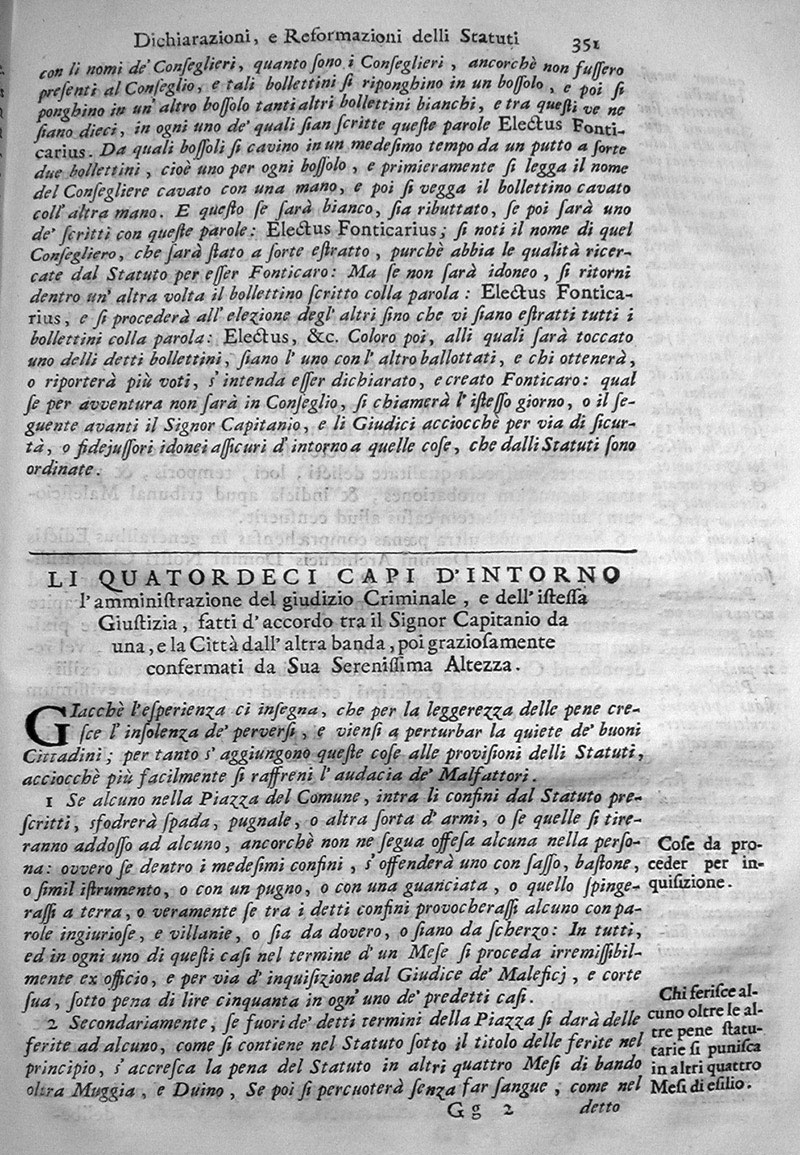 Dichiarazioni, e Reformazioni delli Statuti 351
con li nomi de' Conſeglieri, quanto ſono i Conſeglieri, ancorchè non fuſſero
preſenti al Conſeglio, e tali bollettini ſi riponghino in un boſſolo, e poi ſi
ponghino in un' altro boſſolo tanti altri bollettini bianchi, e tra queſti ve ne
ſiano dieci, in ogni uno de' quali ſian ſcritte queſte parole Electus Fonti-
carius. Da quali boſſoli ſi cavino in un medeſimo tempo da un putto a ſorte
due bollettini, cioè uno per ogni boſſolo, e primieramente ſi legga il nome
del Conſegliere cavato con una mano, e poi ſi vegga il bollettino cavato
coll' altra mano. E queſto ſe ſarà bianco, ſia ributtato, ſe poi ſarà uno
de' ſcritti con queſte parole: Electus Fonticarius; ſi noti il nome di quel
Conſegliero, che ſarà ſtato a ſorte eſtratto, purchè abbia le qualità ricer-
cate dal Statuto per eſſer Fonticaro: Ma ſe non ſarà idoneo, ſi ritorni
dentro un' altra volta il bollettino ſcritto colla parola: Electus Fontica-
rius, e ſi procederà all' elezione degl' altri ſino che vi ſiano eſtratti tutti i
bollettini colla parola: Electus, &c. Coloro poi, alli quali ſarà toccato
uno delli detti bollettini, ſiano l' uno con l' altro ballottati, e chi ottenerà,
o riporterà più voti, s' intenda eſſer dichiarato, e creato Fonticaro: qual
ſe per avventura non ſarà in Conſeglio, ſi chiamerà l' iſteſſo giorno, o il ſe-
guente avanti il Signor Capitanio, e li Giudici acciocchè per via di ſicur-
tà, o fidejuſſori idonei aſſicuri d' intorno a quelle coſe, che dalli Statuti ſono
ordinate.
LI QUATORDECI CAPI D'INTORNO
l'amminiſtrazione del giudizio Criminale, e dell' iſteſſa
Giuſtizia, fatti d'accordo tra il Signor Capitanio da
una, e la Città dall' altra banda, poi grazioſamente
confermati da Sua Sereniſſima Altezza.
GIacchè l'eſperienza ci inſegna, che per la leggerezza delle pene cre-
ſce l' inſolenza de' perverſi, e vienſi a perturbar la quiete de' buoni
Cittadini; per tanto s' aggiungono queſte coſe alle proviſioni delli Statuti,
acciocchè più facilmente ſi raffreni l' audacia de' Malfattori.
1 Se alcuno nella Piazza del Comune, intra li confini dal Statuto pre-
ſcritti, sfodrerà ſpada, pugnale, o altra ſorta d' armi, o ſe quelle ſi tire-
ranno addoſſo ad alcuno, ancorchè non ne ſegua offeſa alcuna nella perſo-
na: ovvero ſe dentro i medeſimi confini, s' offenderà uno con ſaſſo, baſtone,
o ſimil iſtrumento, o con un pugno, o con una guanciata, o quello ſpinge-
raſſi a terra, o veramente ſe tra i detti confini provocheraſſi alcuno con pa-
role ingiurioſe, e villanie, o ſia da dovero, o ſiano da ſcherzo: In tutti,
ed in ogni uno di queſti caſi nel termine d' un Meſe ſi proceda irremiſſibil-
mente ex officio, e per via d' inquiſizione dal Giudice de' Maleficj, e corte
ſua, ſotto pena di lire cinquanta in ogn' uno de' predetti caſi.
Coſe da pro-
ceder per in-
quiſizione.
2 Secondariamente, ſe fuori de' detti termini della Piazza ſi darà delle
ferite ad alcuno, come ſi contiene nel Statuto ſotto il titolo delle ferite nel
principio, s' accreſca la pena del Statuto in altri quattro Meſi di bando
oltra Muggia, e Duino, Se poi ſi percuoterà ſenza far ſangue, come nel
Chi feriſce al-
cuno oltre le al-
tre pene ſtatu-
tarie ſi puniſca
in altri quattro
Meſi di eſilio.
Gg 2 detto